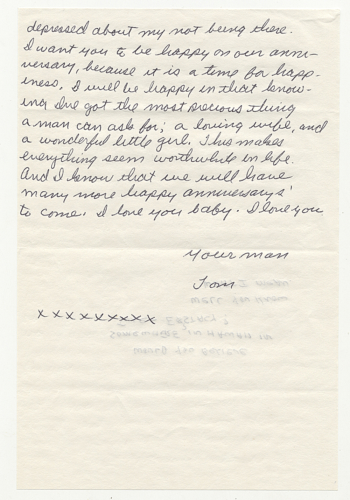 depressed about my not being there.
I want you to be happy on our anni-
versary, because it is a time for happ-
iness. I will be happy in that know-
ing I've got the most precious thing
a man can ask for; a loving wife, and
a wonderful little girl. This makes
everything seem worthwhile in life.
And I know that we will have
many more happy anniversary's
to come. I love you baby. I love you
Your man
Tom
x x x x x x x x x